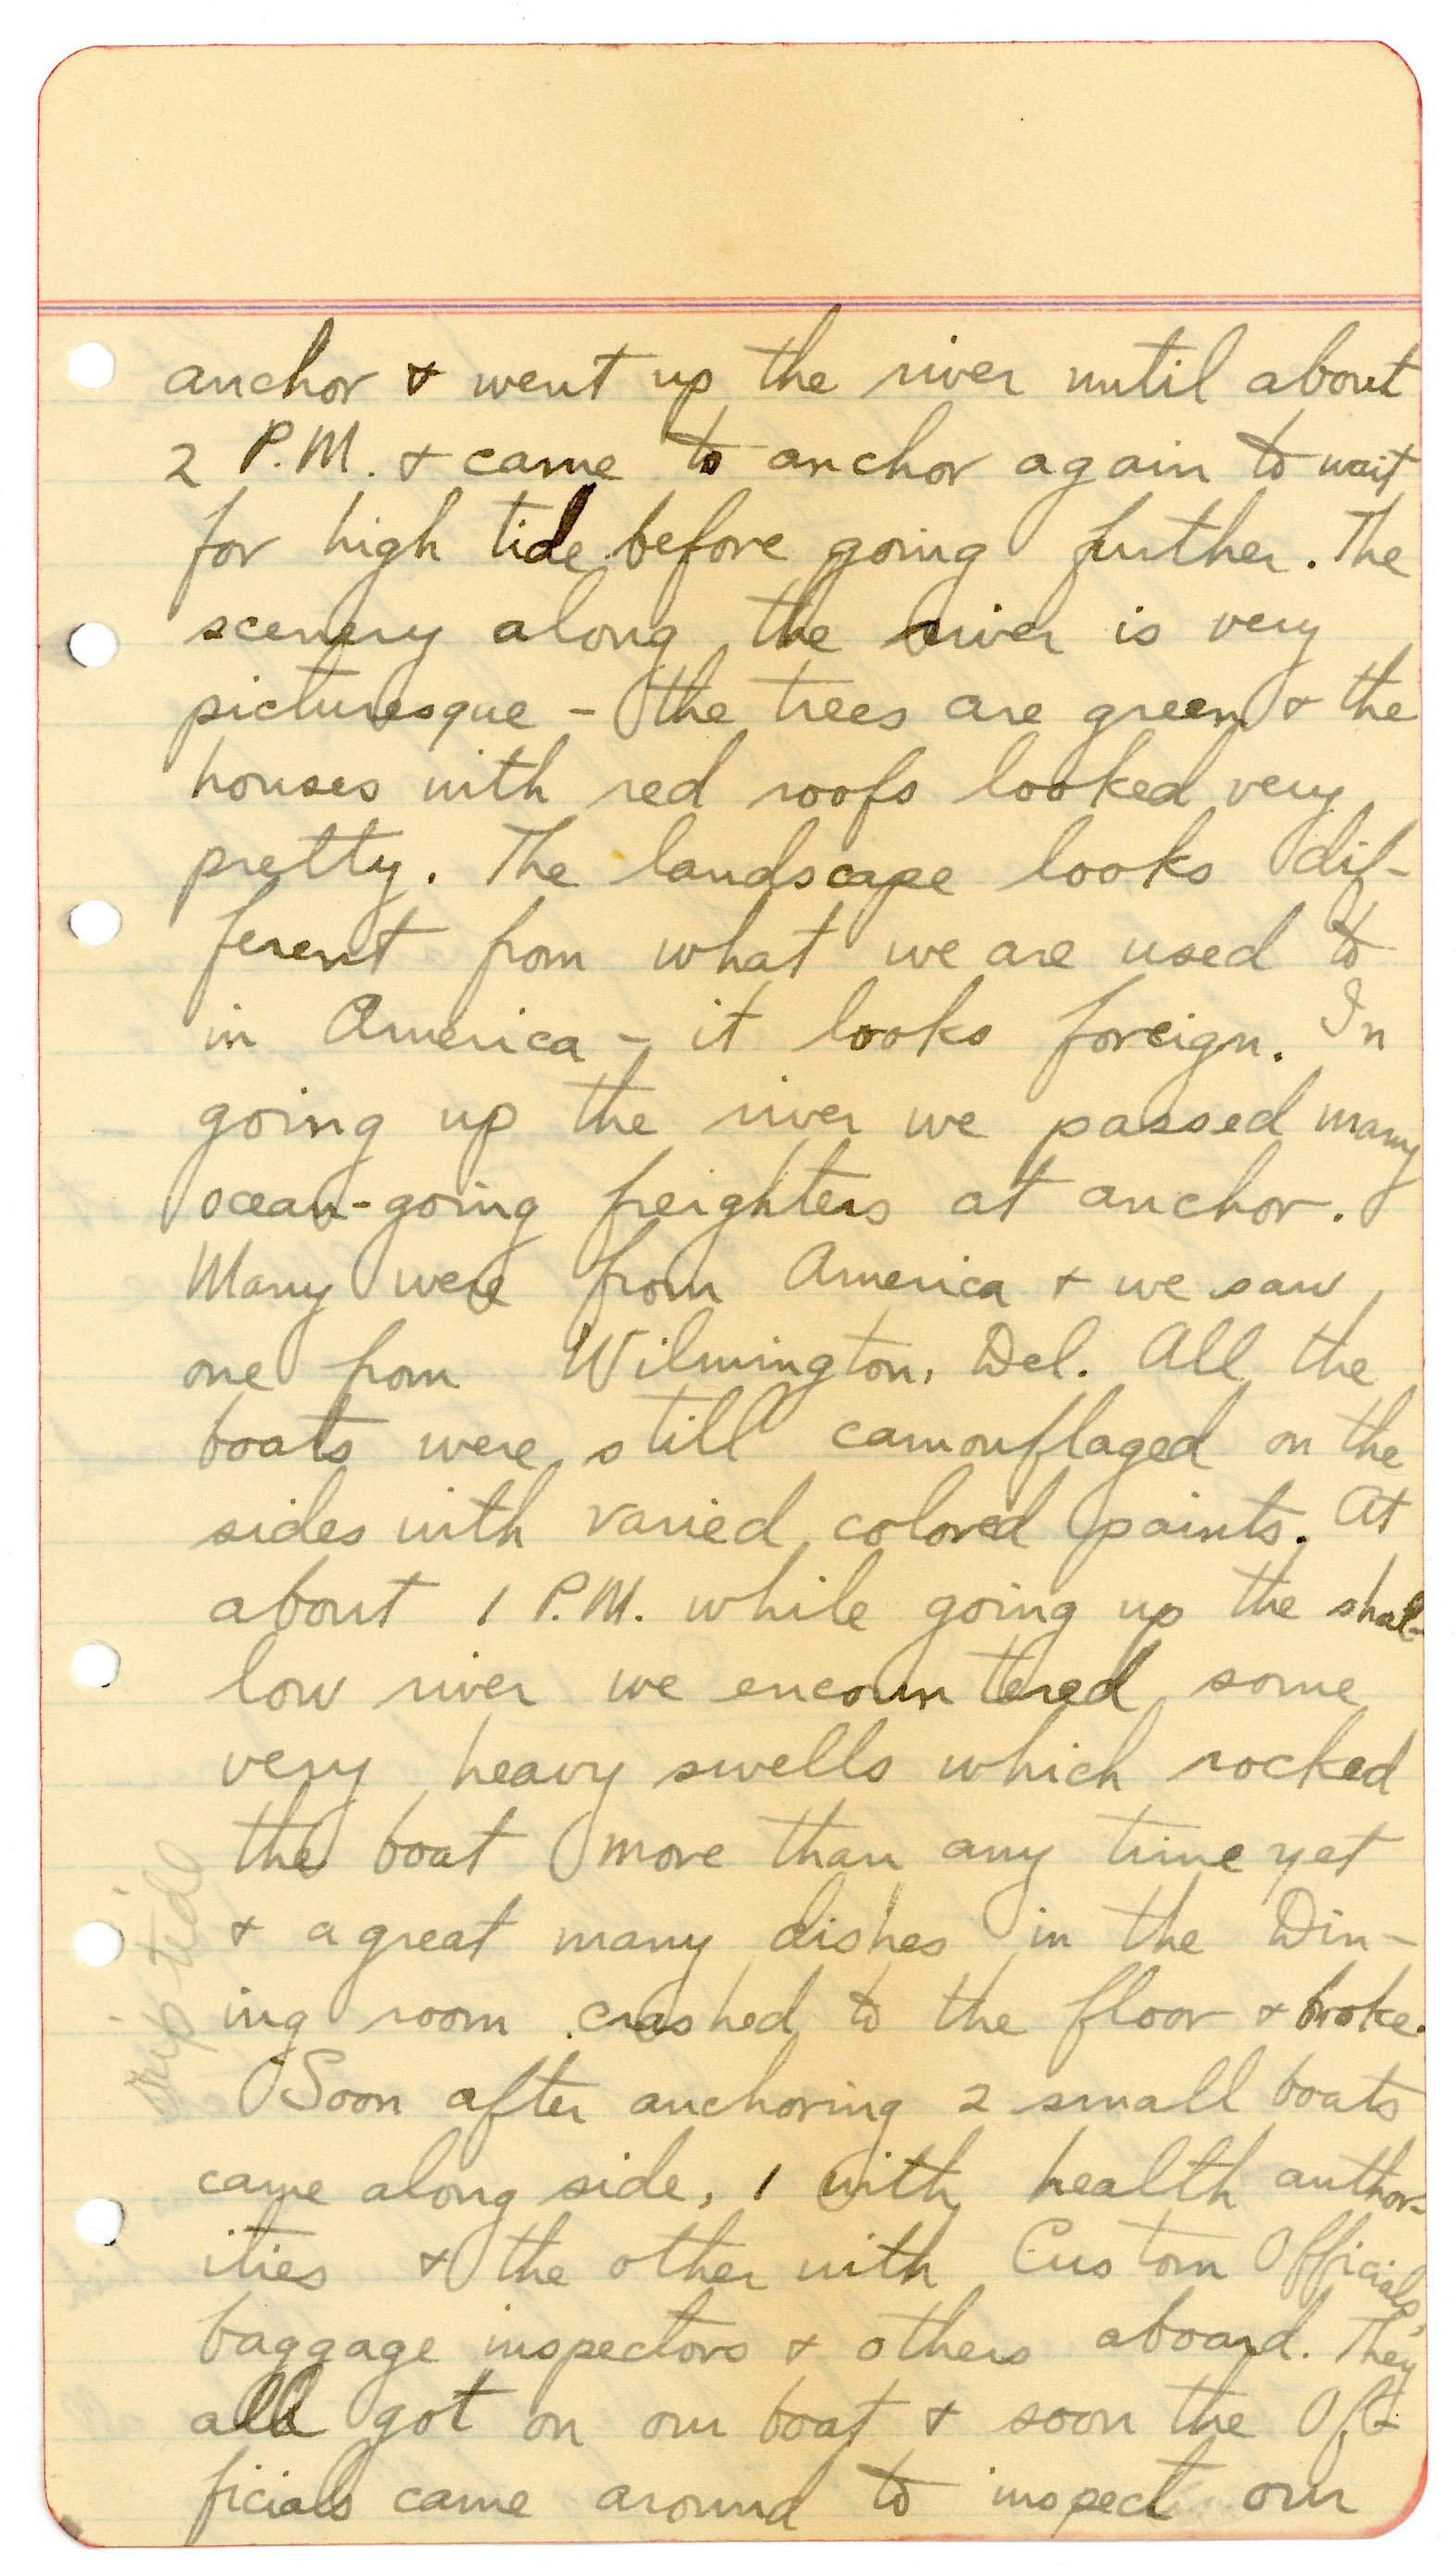 anchor & went up the river until about
2 P.M. & came to anchor again to wait
for high tide before going further. The
scenery along the river is very
picturesque - the trees are green & the
houses with red roofs looked very
pretty. The landscape looks dif-
ferent from what we are used to
in America - it looks foreign. In
going up the river we passed many
ocean-going freighters at anchor.
Many were from America & we saw
one from Wilmington, Del. All the
boats were still camouflaged on the
sides with varied colored paints. At
about 1 P.M. while going up the shal-
low river we encountered some
very heavy swells which rocked
the boat more than any time yet
& a great many dishes in the Din-
ing room crashed to the floor & broke.
Soon after anchoring 2 small boats
came along side, 1 with health author-
ities & the other with Custom Officials,
baggage inspectors & others aboard. They
all got on our boat & soon the Of-
ficials came around to inspect our
rip tide